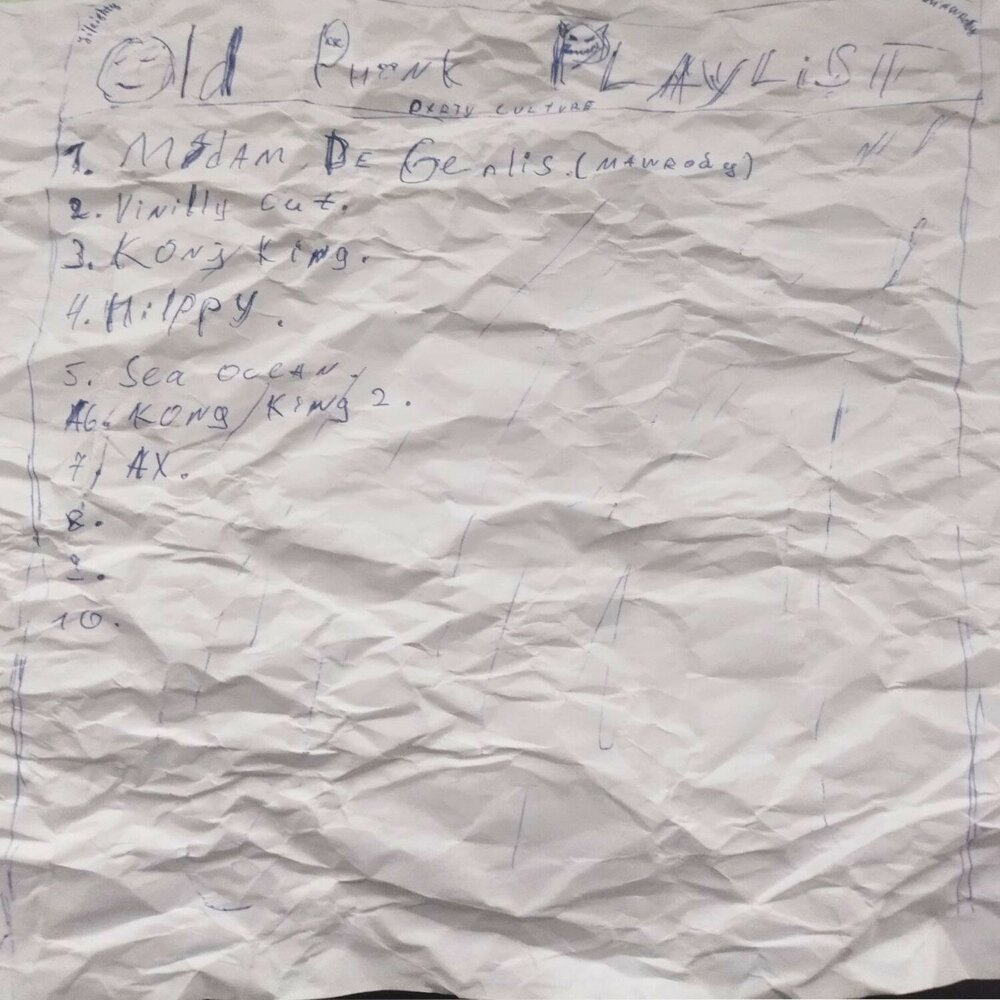 Old PHONK PLAYLIST
DXRTY CULTURE
1. MADAM DE Genlis. (MAWRODY)
2. Vinilly cut.
3. KONG King.
4. Hilppy.
5. Sea OCEAN.
6. KONG King 2.
7. AX.
8.
9.
10.